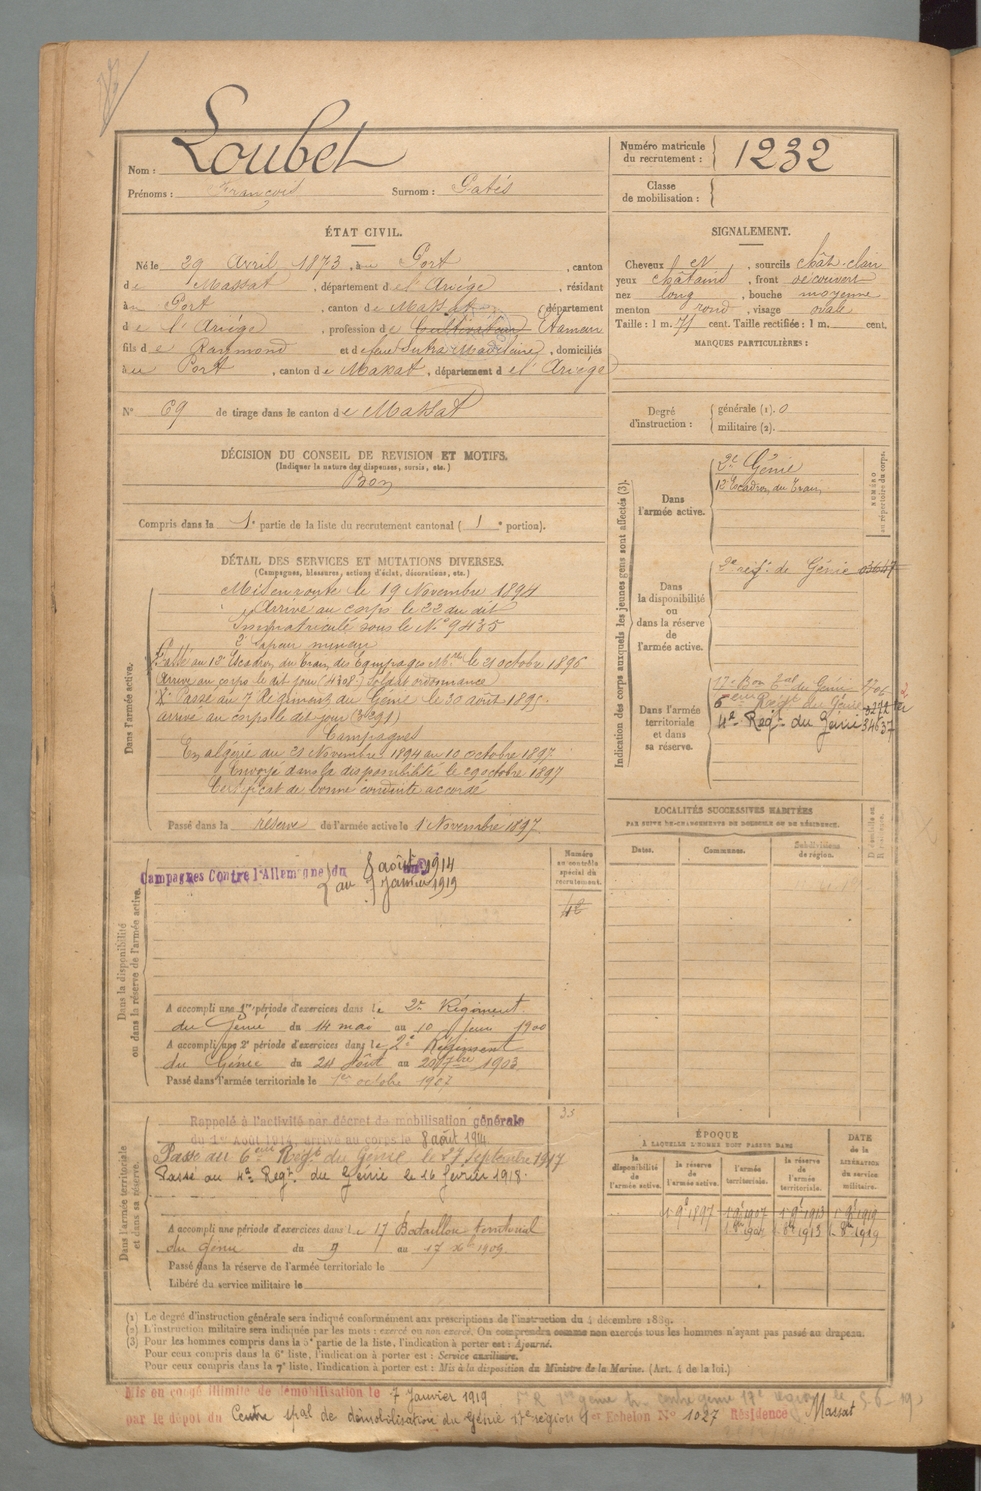 Nom : Loubet
Prénoms : François Surnom : Gatés
Numéro matricule du recrutement : 1232
Classe de mobilisation :
ÉTAT CIVIL.
Né le 29 Avril 1873, à Port, canton
de Massat, département de l'Ariège, résidant
à Port, canton de Massat, département
de l'Ariège, profession de Cultivateur Etameur
fils de Raymond et de feue Sutra Madelaine, domiciliés
à Port, canton de Massat, département de l'Ariège
N° 69 de tirage dans le canton de Massat
SIGNALEMENT.
Cheveux et, sourcils chât-clair
yeux châtains, front découvert
nez long, bouche moyenne
menton rond, visage ovale
Taille : 1 m. 71 cent. Taille rectifiée : 1 m. cent.
MARQUES PARTICULIÈRES :
Degré d'instruction : générale (1). 0
militaire (2).
DÉCISION DU CONSEIL DE REVISION ET MOTIFS.
(Indiquer la nature des dispenses, sursis, etc.)
Bon
Compris dans la 1e partie de la liste du recrutement cantonal ( 1 e portion).
DÉTAIL DES SERVICES ET MUTATIONS DIVERSES.
(Campagnes, blessures, actions d'éclat, décorations, etc.)
Dans l'armée active.
Mis en route le 19 Novembre 1894
Arrivé au corps le 22 du dit
Immatriculé sous le N° 9435
2e Sapeur mineur
Passé au 12e Escadron du Train des Equipages Mres le 21 octobre 1896
Arrivé au corps le dit jour (4328) Soldat ordonnance
Passé au 7 Régiment du Génie le 30 août 1895
arrivé au corps le dit jour
Campagnes
En algérie du 21 Novembre 1894 au 10 octobre 1897
Envoyé dans la disponibilité le 29 octobre 1897
Certificat de bonne conduite accordé
Passé dans la réserve de l'armée active le 1 Novembre 1897
Indication des corps auxquels les jeunes gens sont affectés (3).
NUMÉRO au répertoire du corps.
Dans l'armée active.
2e Génie
12e Escadron du Train
Dans la disponibilité ou dans la réserve de l'armée active.
2e regt de Génie
Dans l'armée territoriale et dans sa réserve.
17e Bon Tal du Génie
6eme Régt du Génie
4e Regt du Génie 34637
LOCALITÉS SUCCESSIVES HABITÉES
PAR SUITE DE CHANGEMENTS DE DOMICILE OU DE RÉSIDENCE.
Dates. Communes. Subdivisions de région.
Dans la disponibilité ou dans la réserve de l'armée active.
Numéro au contrôle spécial du recrutement.
Campagnes Contre l'Allemagne du 8 août 1914
au 7 Janvier 1919
A accompli une 1re période d'exercices dans le 2e Régiment
du Génie du 14 mai au 10 Juin 1900
A accompli une 2e période d'exercices dans le 2e Régiment
du Génie du 24 Août au 20 7bre 1903
Passé dans l'armée territoriale le 1er octobre 1907
Dans l'armée territoriale et dans sa réserve.
Rappelé à l'activité par décret de mobilisation générale
du 1er Août 1914, arrivé au corps le 8 août 1914
Passé au 6eme Régt du Génie le 27 Septembre 1917
Passé au 4e Regt du Génie le 16 février 1918
A accompli une période d'exercices dans le 17 Bataillon territorial
du Génie du 9 au 17 Xe 1909
Passé dans la réserve de l'armée territoriale le
Libéré du service militaire le
ÉPOQUE
À LAQUELLE L'HOMME DOIT PASSER DANS
DATE de la LIBÉRATION du service militaire.
la disponibilité de l'armée active. la réserve de l'armée active. l'armée territoriale. la réserve de l'armée territoriale.
1 9e 1897 1 9e 1907 1 9e 1913 1 9e 1919
1 8bre 1907 1 8bre 1913 1 8bre 1919
(1) Le degré d'instruction générale sera indiqué conformément aux prescriptions de l'instruction du 4 décembre 1889.
(2) L'instruction militaire sera indiquée par les mots : exercé ou non exercé. On comprendra comme non exercés tous les hommes n'ayant pas passé au drapeau.
(3) Pour les hommes compris dans la 5e partie de la liste, l'indication à porter est : Ajourné.
Pour ceux compris dans la 6e liste, l'indication à porter est : Service auxiliaire.
Pour ceux compris dans la 7e liste, l'indication à porter est : Mis à la disposition du Ministre de la Marine. (Art. 4 de la loi.)
Mis en congé illimité de démobilisation le 7 Janvier 1919
par le dépôt du Centre spal de démobilisation du Génie 17e région 1er Echelon N° 1027 Résidence Massat